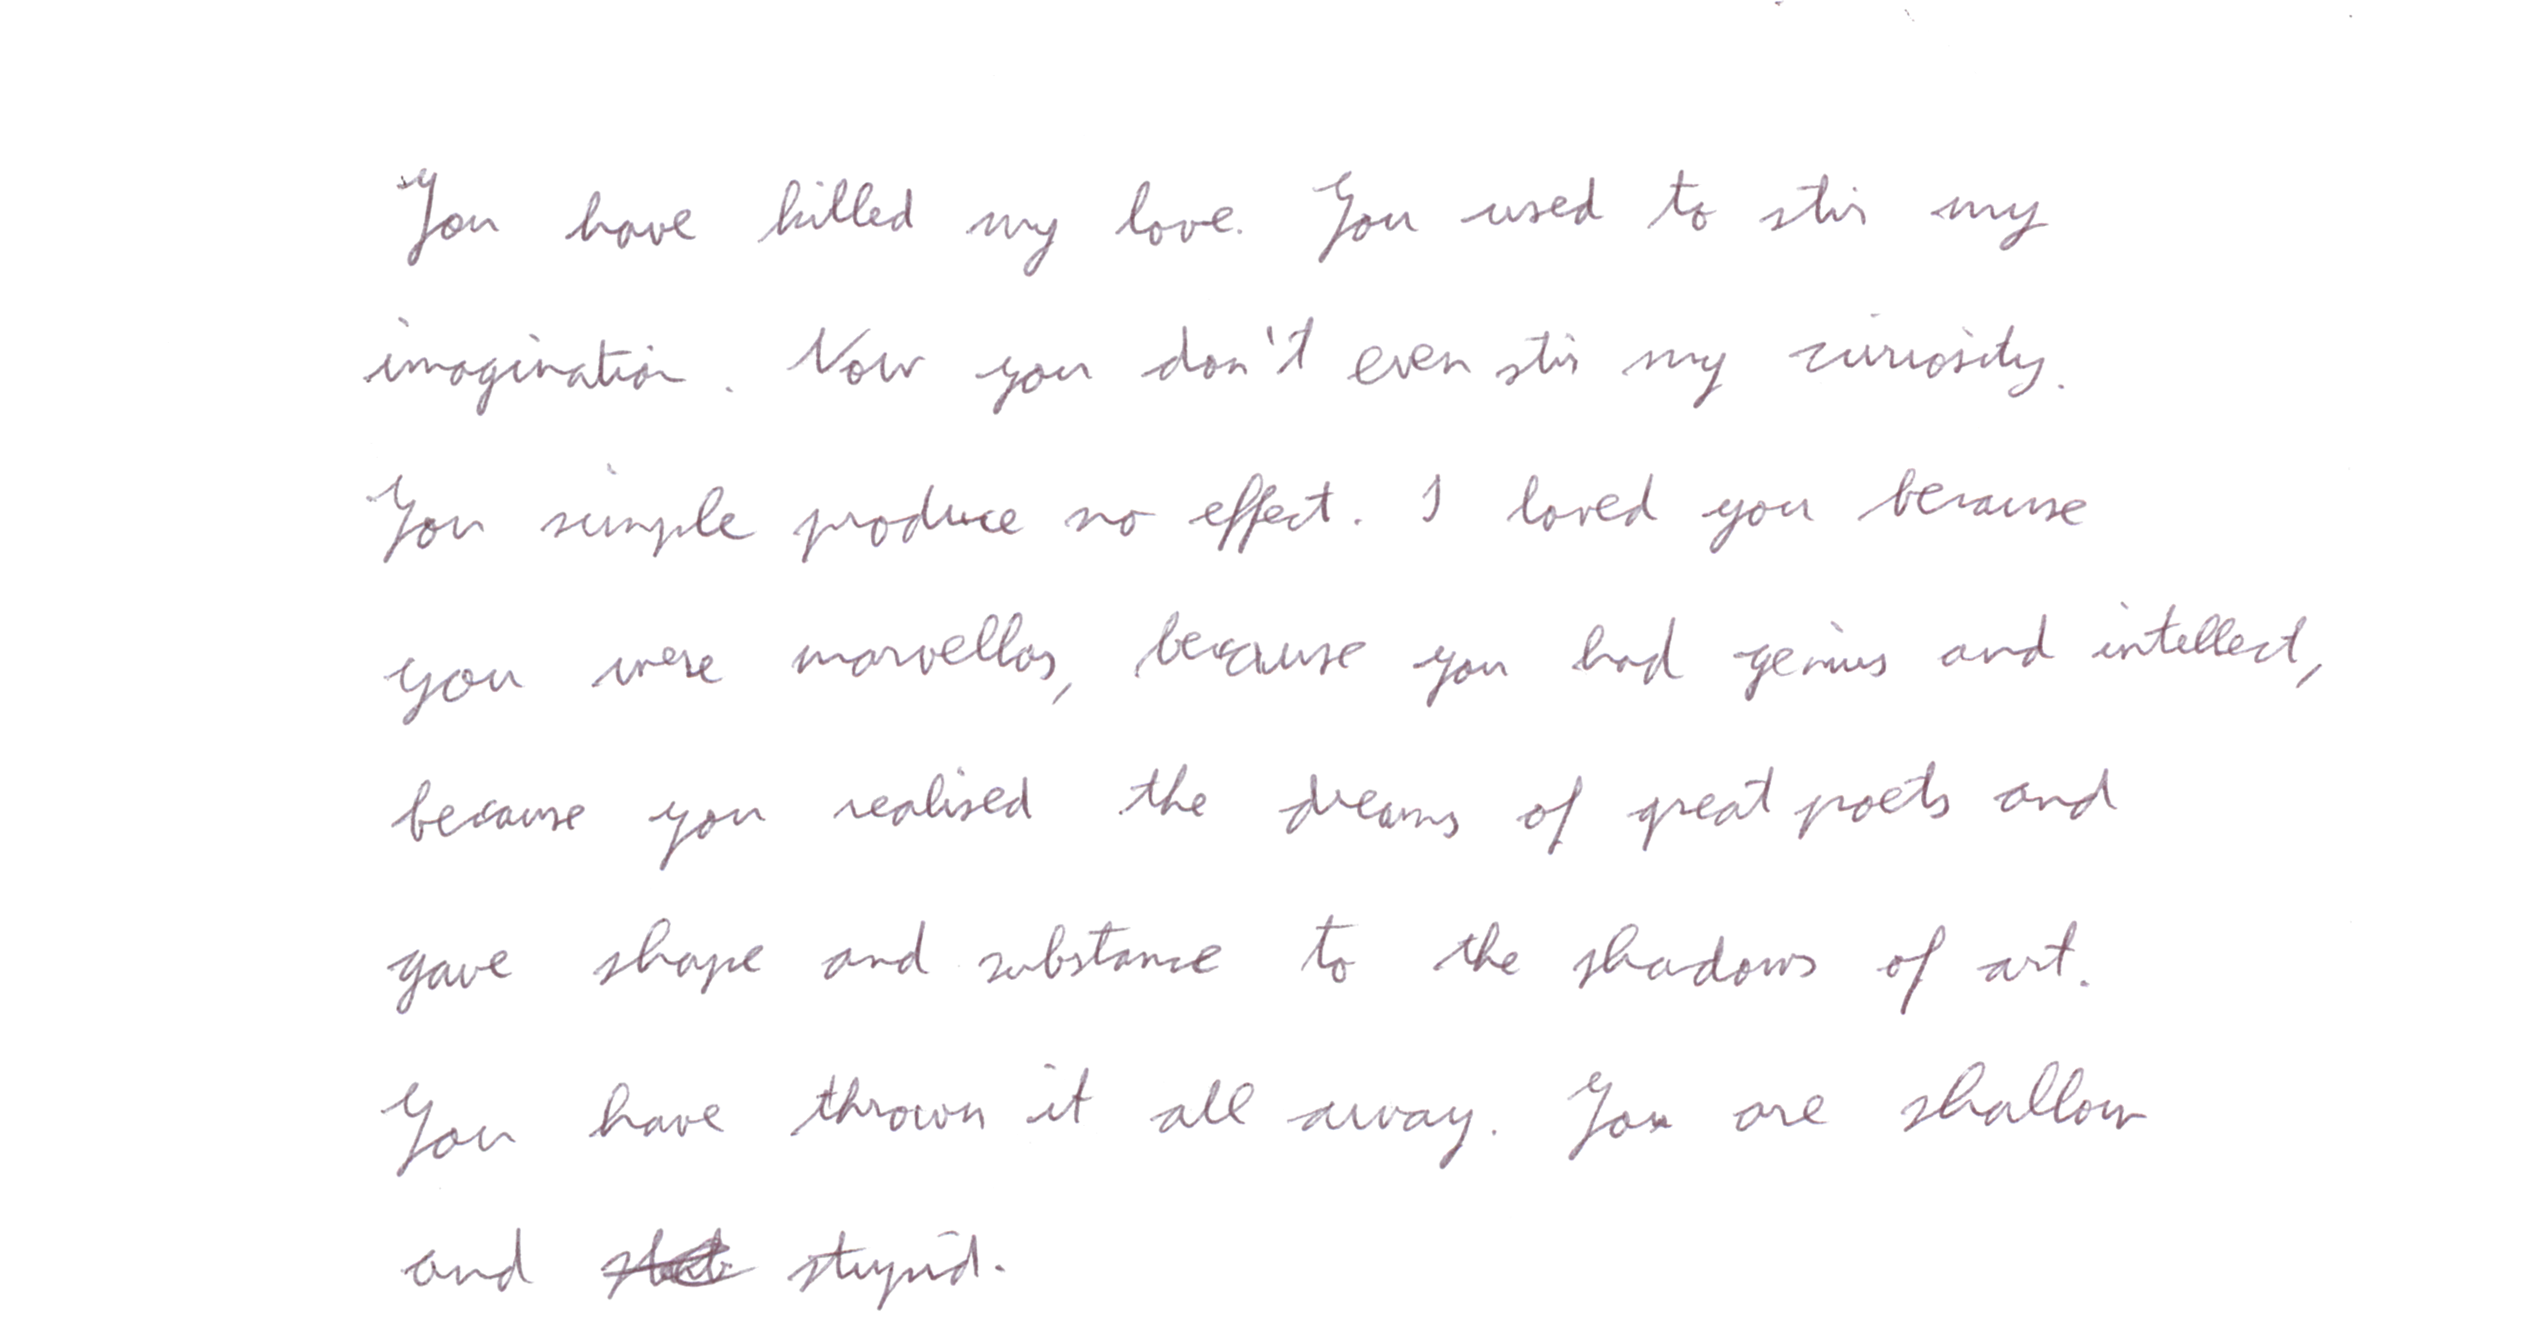 You have killed my love. You used to stir my
imagination. Now you don't even stir my curiosity.
You simple produce no effect. I loved you because
you were marvellos, because you had genius and intellect,
because you realised the dreams of great poets and
gave shape and substance to the shadows of art.
You have thrown it all away. You are shallow
and stupid.